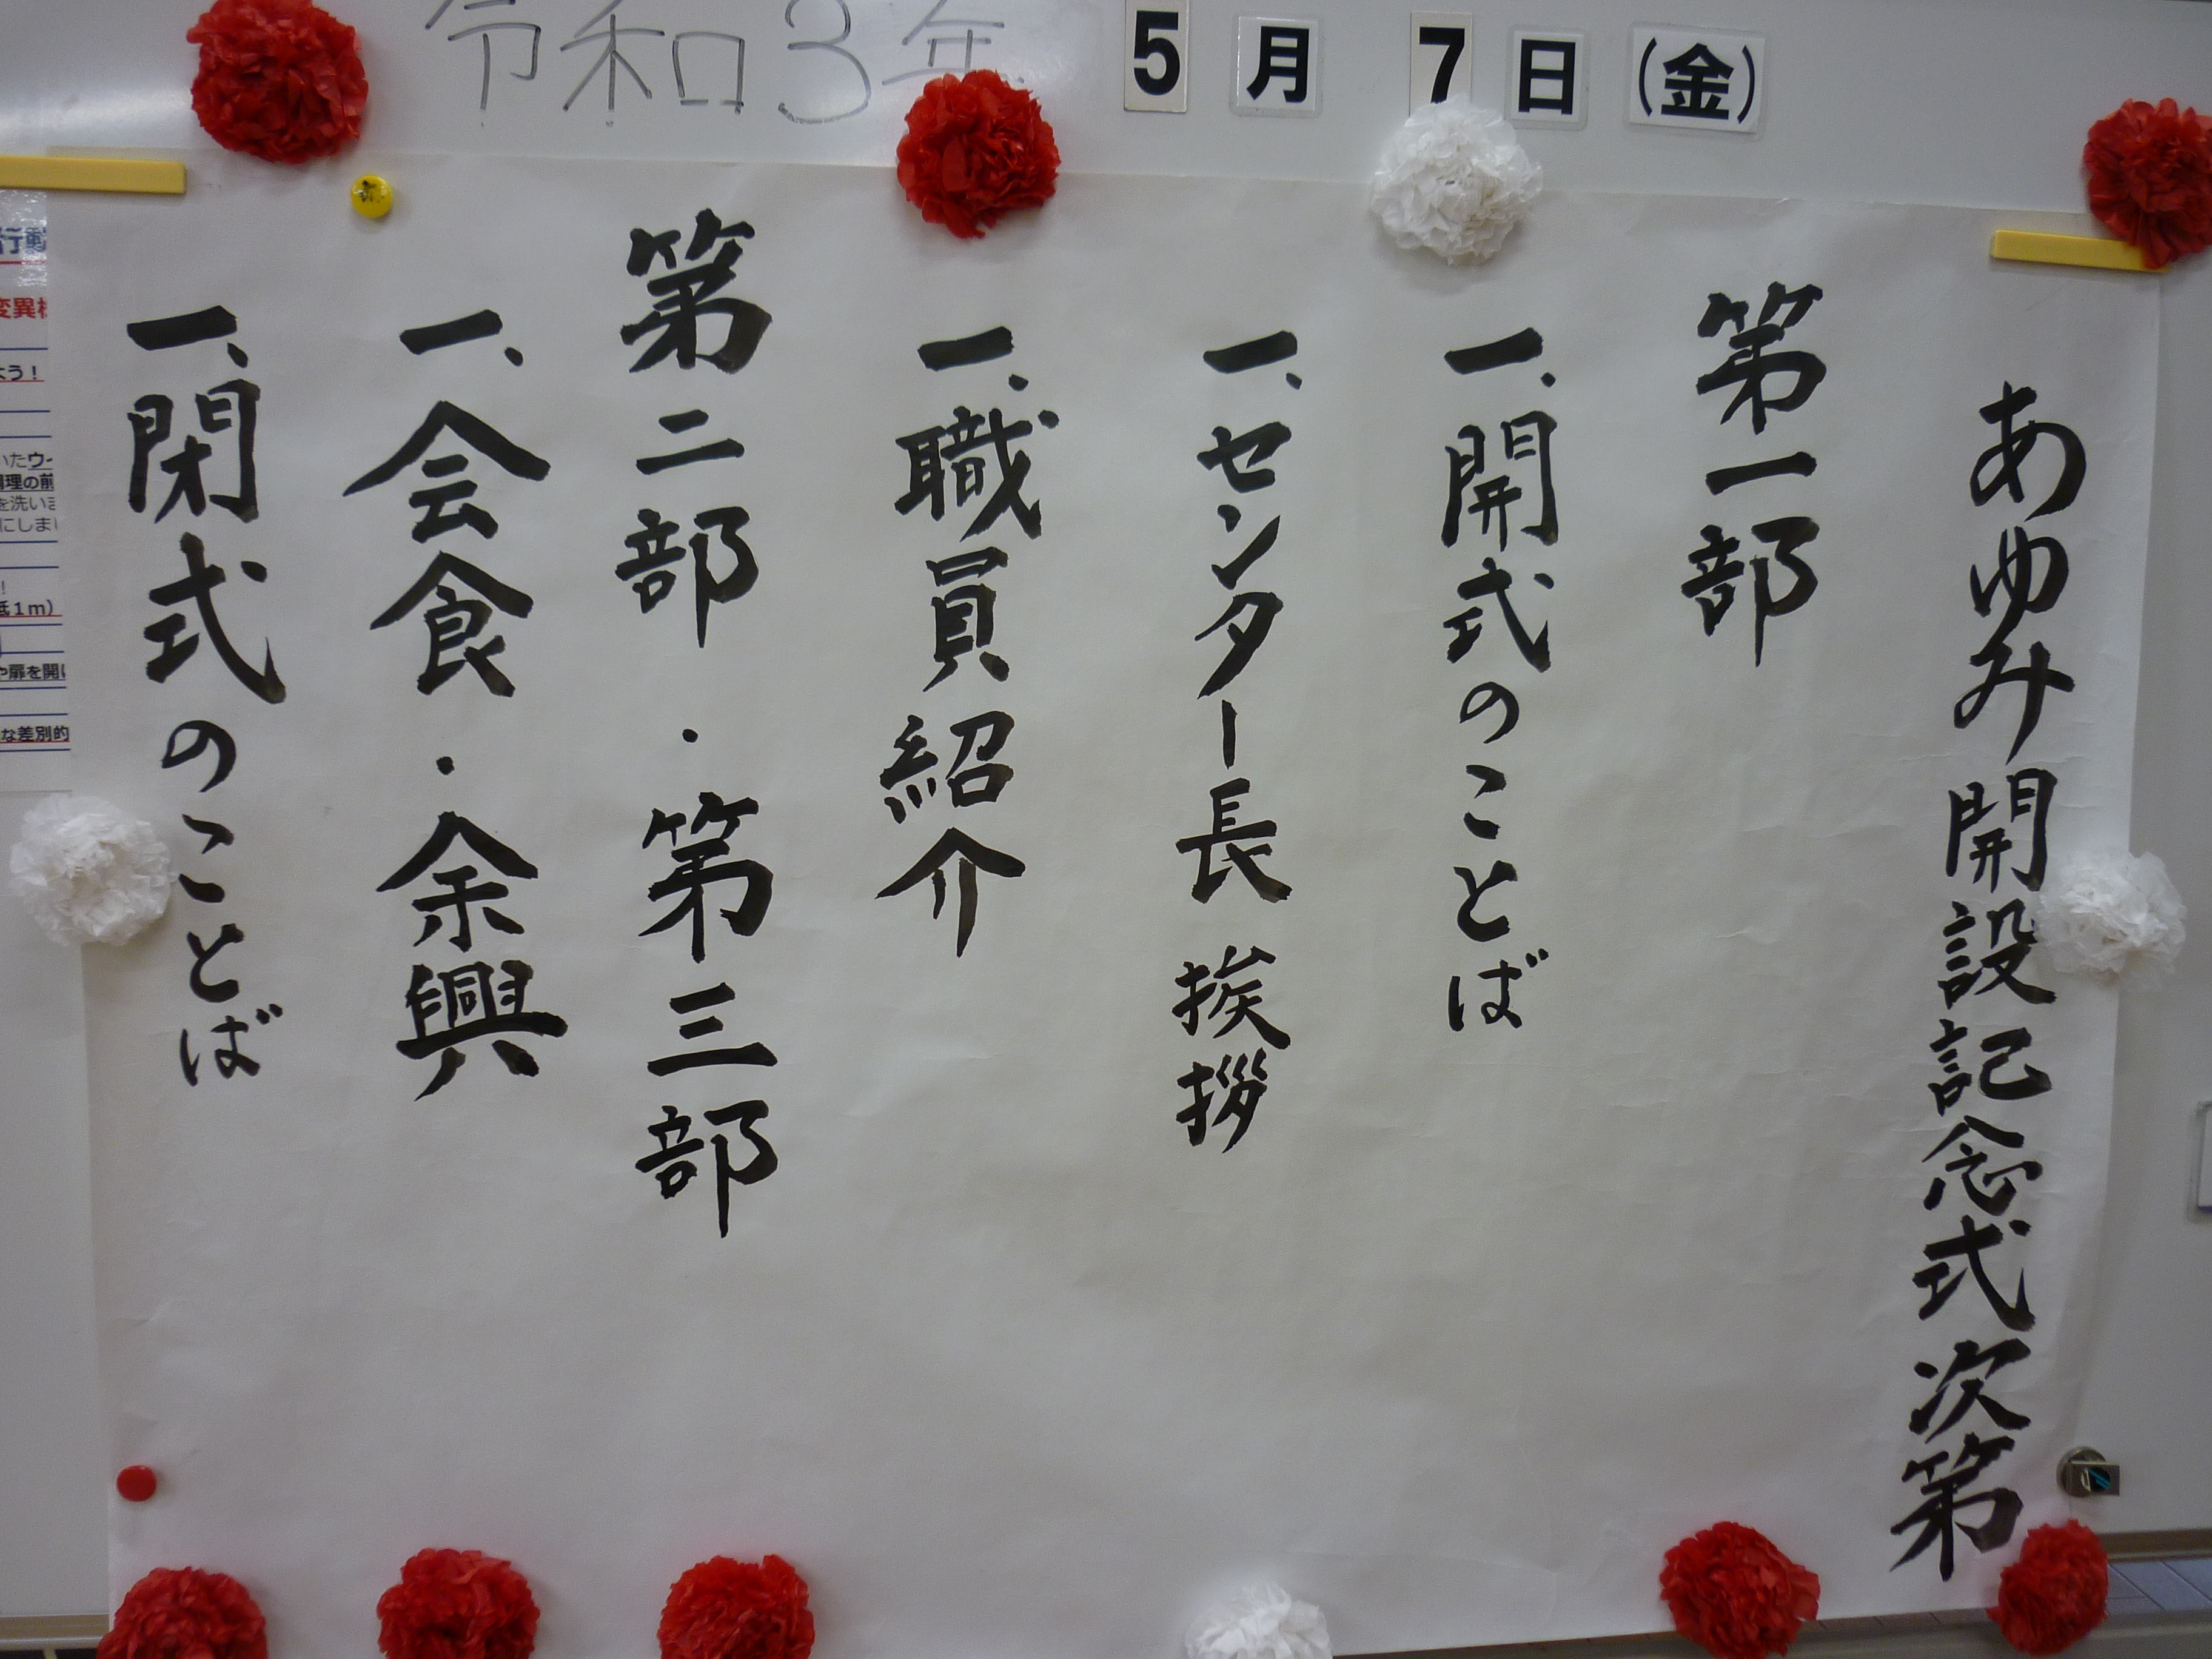 令和3年 5月7日(金)
あゆみ開設記念式次第
第一部
一、開式のことば
一、センター長 挨拶
一、職員紹介
第二部・第三部
一、会食・余興
一、閉式のことば
行動
変異
よう!
いたウ
調理の前
を洗いま
にしまし
!
低1m)
や扉を開け
な差別的